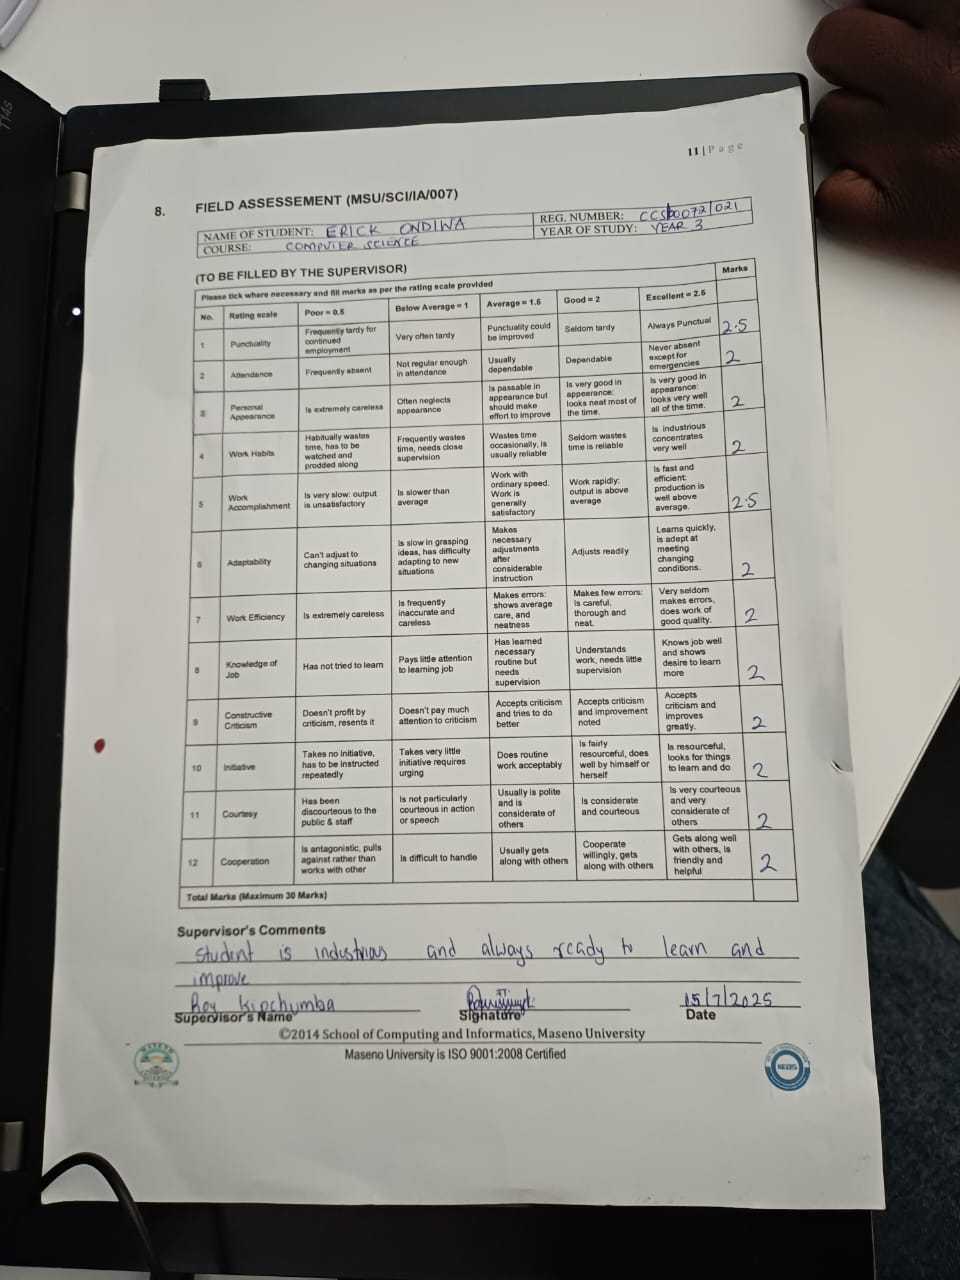 T14s
11 | P a g e
8. FIELD ASSESSEMENT (MSU/SCI/IA/007)
NAME OF STUDENT: ERICK ONDIWA REG. NUMBER:
COURSE: COMPUTER SCIENCE YEAR OF STUDY: YEAR 3
(TO BE FILLED BY THE SUPERVISOR)
Please tick where necessary and fill marks as per the rating scale provided Marks
No. Rating scale Poor = 0.5 Below Average = 1 Average = 1.5 Good = 2 Excellent = 2.5
1 Punctuality Frequently tardy for continued employment Very often tardy Punctuality could be improved Seldom tardy Always Punctual 2.5
2 Attendance Frequently absent Not regular enough in attendance Usually dependable Dependable Never absent except for emergencies 2
3 Personal Appearance Is extremely careless Often neglects appearance Is passable in appearance but should make effort to improve Is very good in appearance: looks neat most of the time. Is very good in appearance: looks very well all of the time. 2
4 Work Habits Habitually wastes time, has to be watched and prodded along Frequently wastes time, needs close supervision Wastes time occasionally, is usually reliable Seldom wastes time is reliable Is industrious concentrates very well 2
5 Work Accomplishment Is very slow: output is unsatisfactory Is slower than average Work with ordinary speed. Work is generally satisfactory Work rapidly: output is above average Is fast and efficient: production is well above average. 2.5
6 Adaptability Can't adjust to changing situations Is slow in grasping ideas, has difficulty adapting to new situations Makes necessary adjustments after considerable instruction Adjusts readily Learns quickly, is adept at meeting changing conditions. 2
7 Work Efficiency Is extremely careless Is frequently inaccurate and careless Makes errors: shows average care, and neatness Makes few errors: Is careful, thorough and neat. Very seldom makes errors, does work of good quality. 2
8 Knowledge of Job Has not tried to learn Pays little attention to learning job Has learned necessary routine but needs supervision Understands work, needs little supervision Knows job well and shows desire to learn more 2
9 Constructive Criticism Doesn't profit by criticism, resents it Doesn't pay much attention to criticism Accepts criticism and tries to do better Accepts criticism and improvement noted Accepts criticism and improves greatly. 2
10 Initiative Takes no initiative, has to be instructed repeatedly Takes very little initiative requires urging Does routine work acceptably Is fairly resourceful, does well by himself or herself Is resourceful, looks for things to learn and do 2
11 Courtesy Has been discourteous to the public & staff Is not particularly courteous in action or speech Usually is polite and is considerate of others Is considerate and courteous Is very courteous and very considerate of others 2
12 Cooperation Is antagonistic, pulls against rather than works with other Is difficult to handle Usually gets along with others Cooperate willingly, gets along with others Gets along well with others, is friendly and helpful 2
Total Marks (Maximum 30 Marks)
Supervisor's Comments
Student is industrious and always ready to learn and
improve
Roy Kipchumba 15/7/2025
Supervisor's Name Signature Date
©2014 School of Computing and Informatics, Maseno University
Maseno University is ISO 9001:2008 Certified